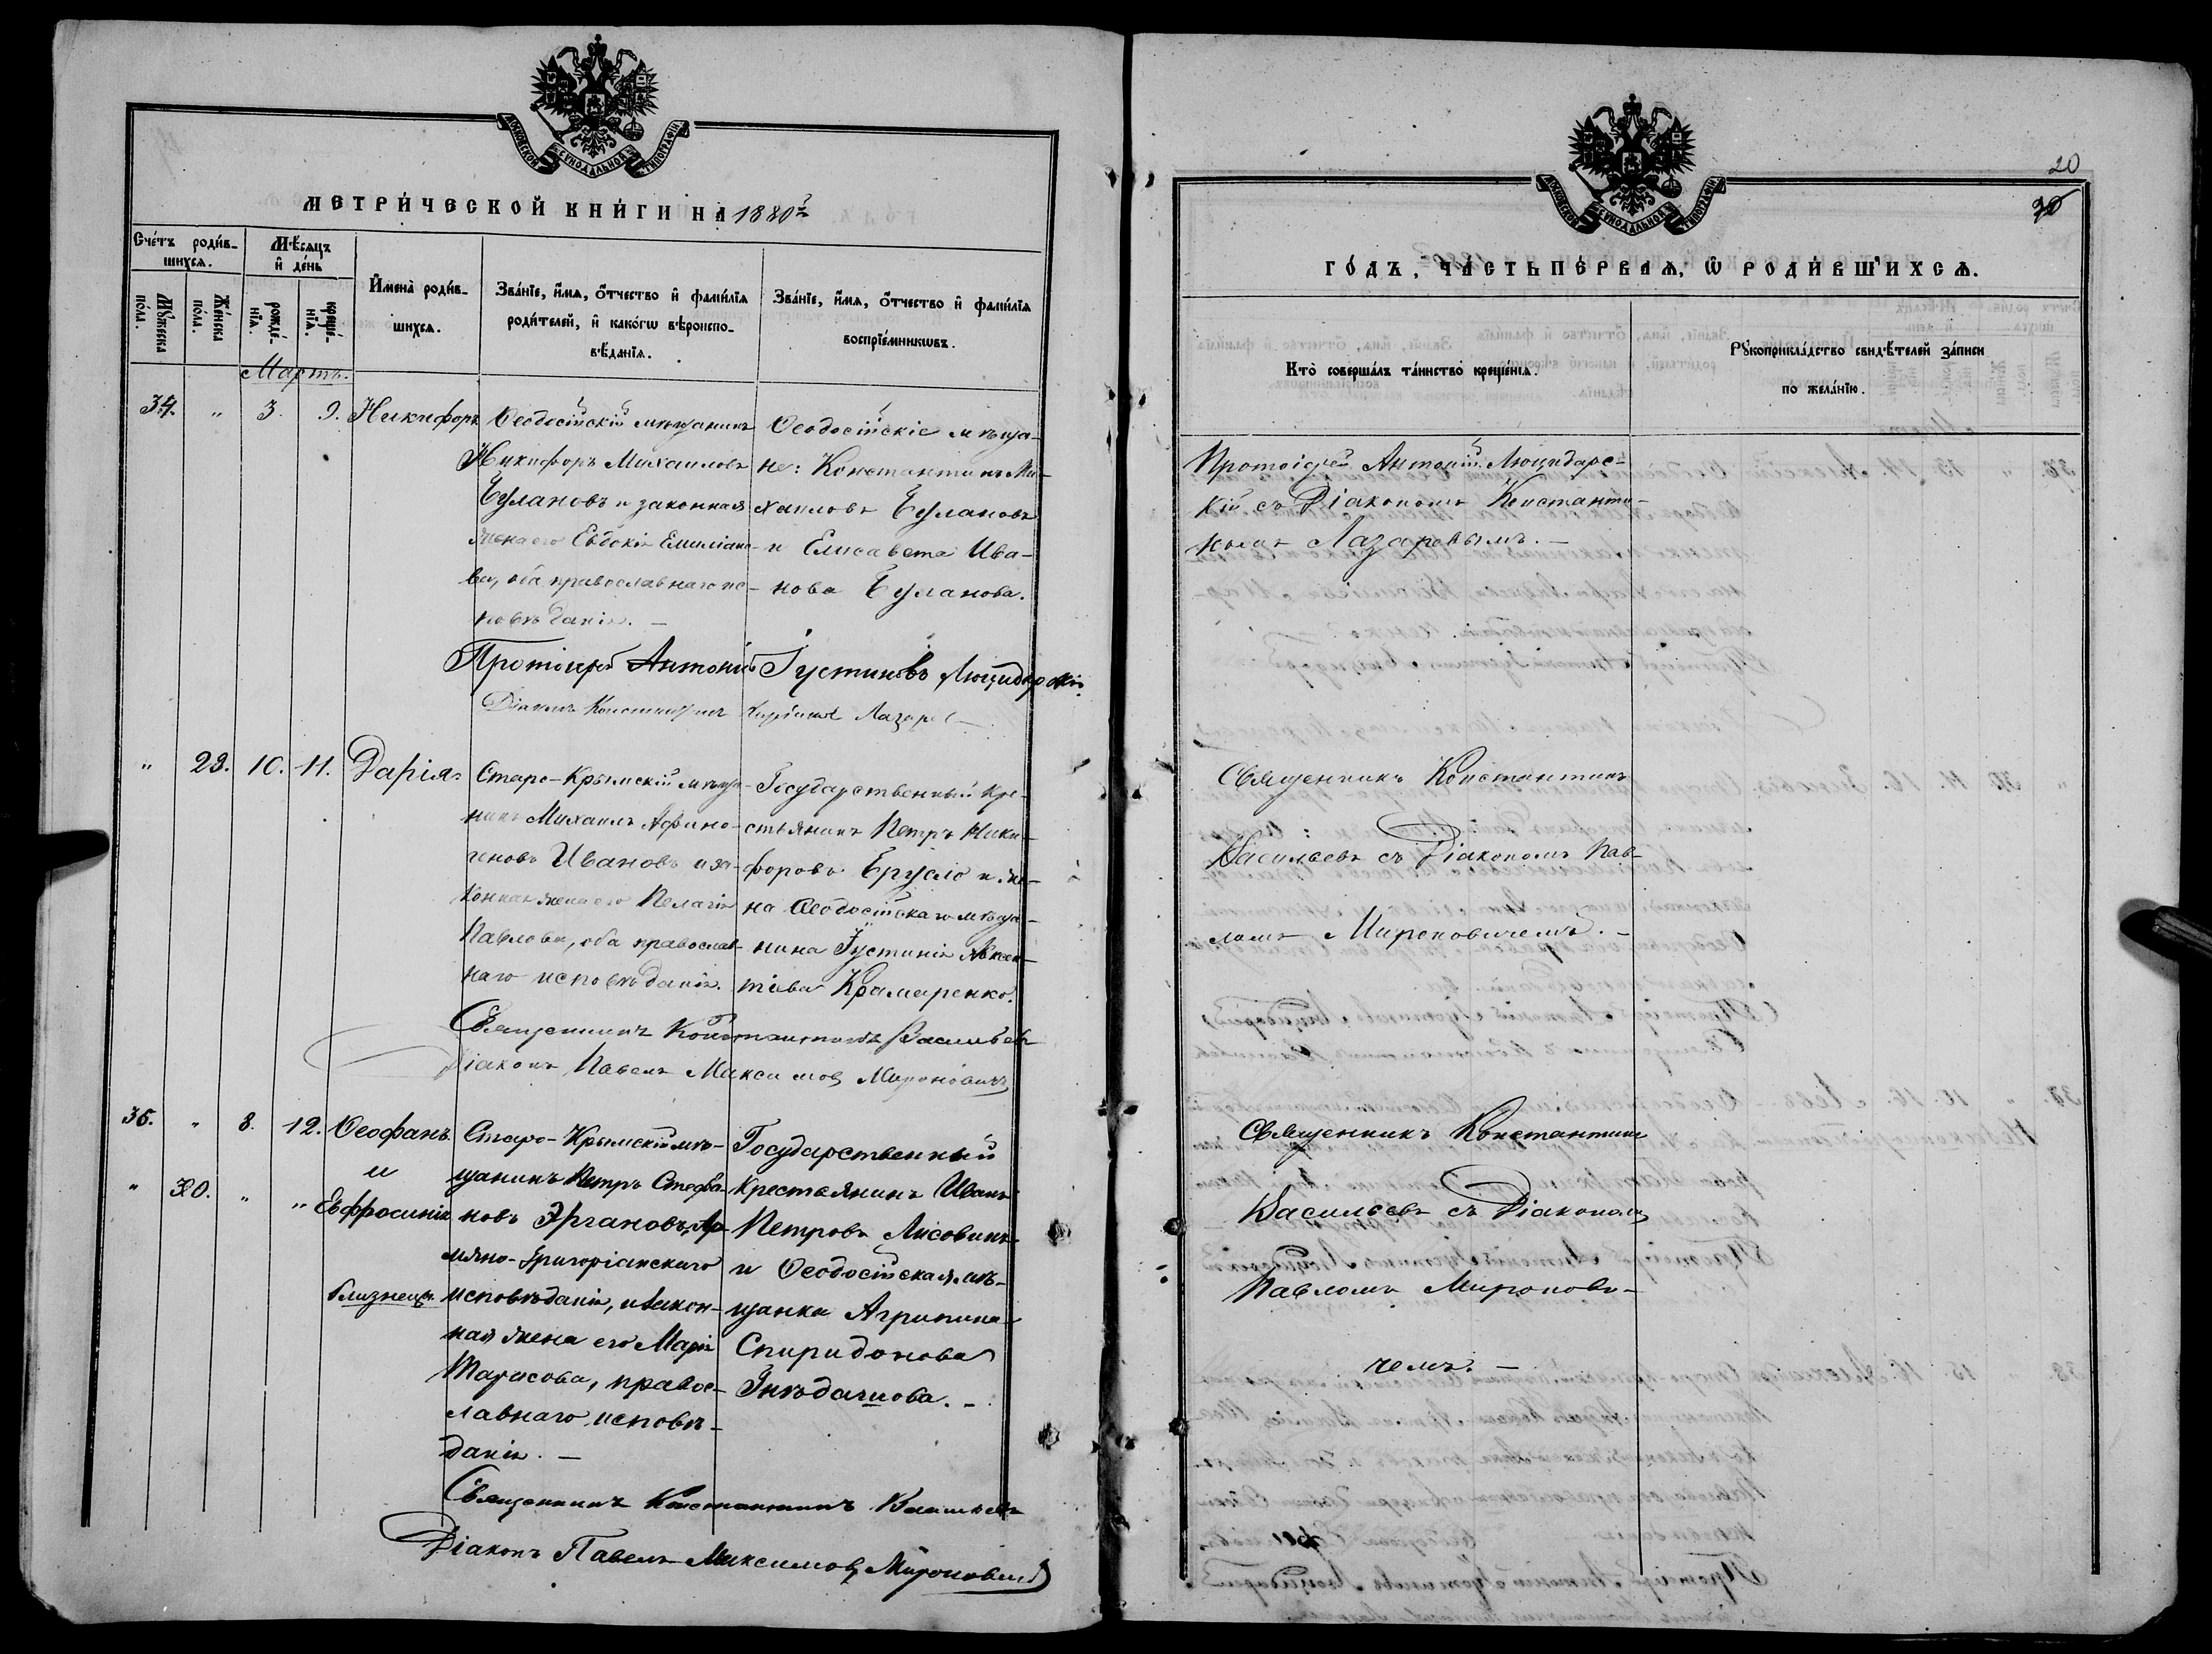 МОСКОВСКОЙ СУНОДАЛЬНОЙ ТИПОГРАФІИ
МЕТРИ́ЧЕСКОЙ КНИ́ГИ НА 1880 г.
Сче́тъ роди́в-
шихсѧ.
Мꙋ́жеска
по́ла.
Же́нска
по́ла.
Мѣ́сѧцъ
и҆ де́нь
рожде́-
нїѧ.
креще́-
нїѧ.
И҆мена̀ роди́в-
шихсѧ.
Зва́нїе, и҆́мѧ, ѻ҆́тчество и҆ фами́лїѧ
роди́телей, и҆ како́гѡ вѣроиспо-
вѣ́данїѧ.
Зва́нїе, и҆́мѧ, ѻ҆́тчество и҆ фами́лїѧ
воспрїе́мникѡвъ.
Мартъ.
34. " 3. 9. Никифоръ
Ѳеодосійскій мѣщанинъ
Никифоръ Михаиловъ
Булановъ и законная
жена его Евдокія Емиліано-
ва, оба православнаго ис-
повѣданія. —
Ѳеодосійскіе мѣща-
не: Константинъ Ми-
хаиловъ Булановъ
и Елисавета Ива-
нова Буланова.
Протоіерей Антоній Іустиновъ Люцидарскій
Діаконъ Константинъ Лазаревъ
" 29. 10. 11. Дарія
Старо-Крымскій мѣща-
нинъ Михаилъ Афино-
геновъ Ивановъ и за-
конная жена его Пелагія
Павлова, оба православ-
наго исповѣданія.
Государственный кре-
стьянинъ Петръ Ники-
форовъ Ерусло и же-
на Ѳеодосійскаго мѣща-
нина Іустинія Авксен-
тіева Крамаренко.
Священникъ Константинъ Васильевъ
Діаконъ Павелъ Максимовъ Мироновичъ
35. " 8. 12. Ѳеофанъ
и
" 30. " " Евфросинія
близнецы.
Старо-Крымскій мѣ-
щанинъ Петръ Стефа-
новъ Эргановъ, Ар-
мяно-Григоріанскаго
исповѣданія, и закон-
ная жена его Марія
Тарасова, правос-
лавнаго исповѣ-
данія. —
Государственный
крестьянинъ Иванъ
Петровъ Лисовинъ
и Ѳеодосійская мѣ-
щанка Агрипина
Спиридонова
Священникъ Константинъ Васильевъ
Діаконъ Павелъ Максимовъ Мироновичъ
20
МОСКОВСКОЙ СУНОДАЛЬНОЙ ТИПОГРАФІИ
ГО́ДЪ, ЧА́СТЬ ПЕ́РВАѦ, Ѡ҆ РОДИ́ВШИХСѦ.
Кто̀ соверша́лъ та́инство креще́нїѧ.
Рꙋкоприкла́дство свидѣ́телей за́писи
по жела́нїю.
Протоіерей Антоній Люцидарс-
кій съ Діакономъ Константи-
номъ Лазаревымъ. —
Священникъ Константинъ
Васильевъ съ Діакономъ Пав-
ломъ Мироновичемъ. —
Священникъ Константинъ
Васильевъ съ Діакономъ
Павломъ Миронови-
чемъ. —